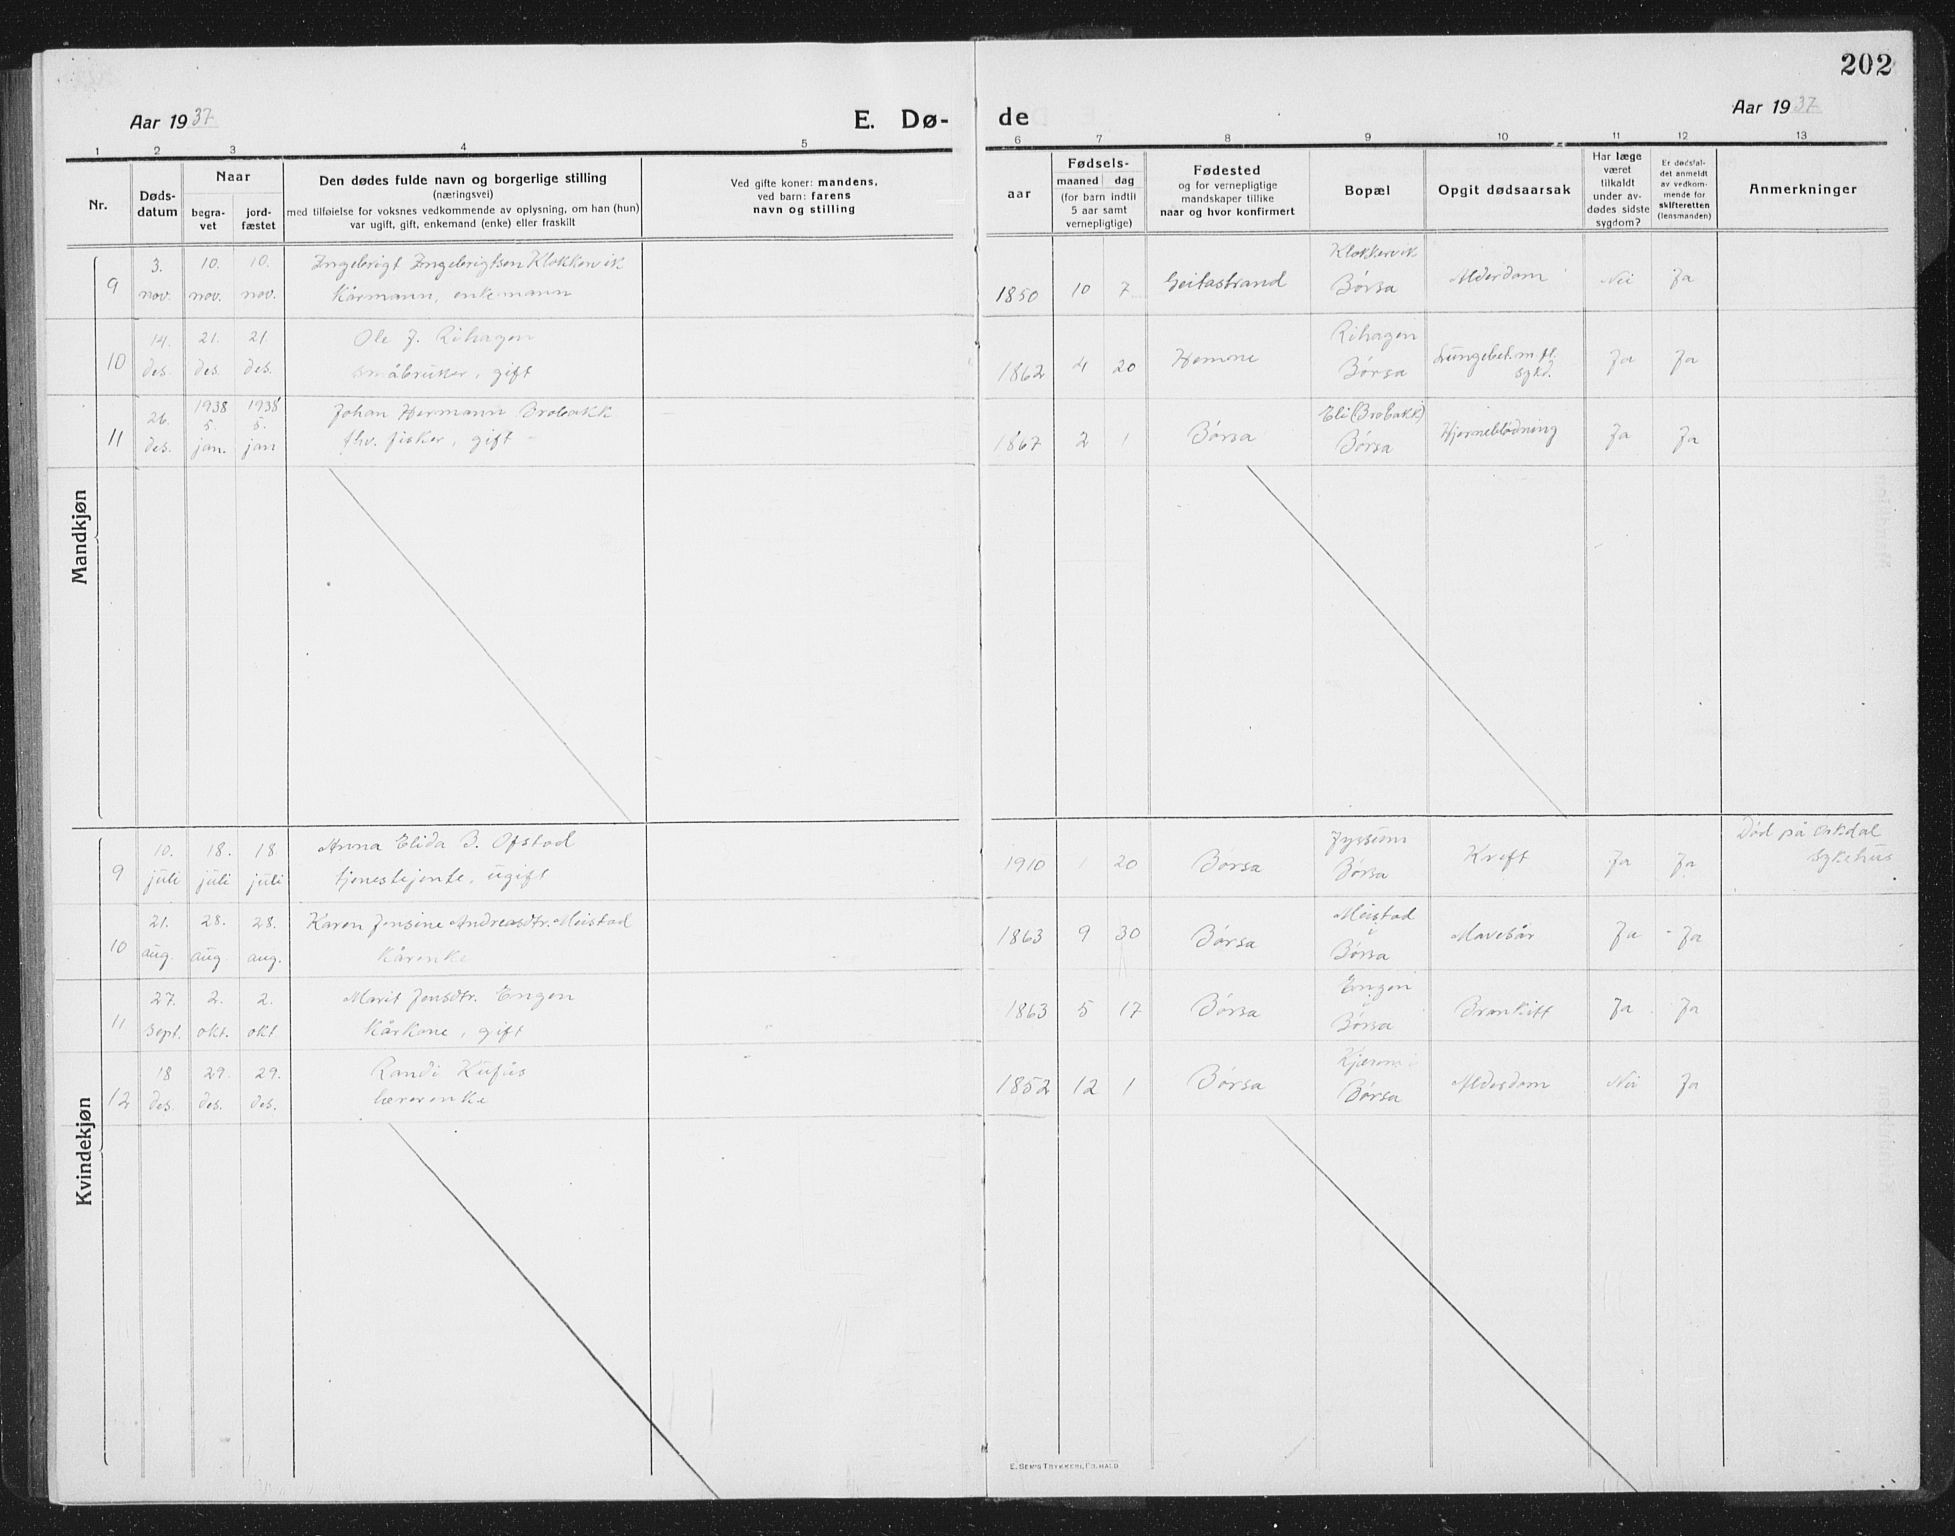 202
Aar 1937
E. Dø-
de
Aar 1937
1 2 3 4 5 6 7 8 9 10 11 12 13
Nr.
Døds-
datum
Naar
begra-
vet
jord-
fæstet
Den dødes fulde navn og borgerlige stilling
(næringsvei)
med tilføielse for voksnes vedkommende av oplysning, om han (hun)
var ugift, gift, enkemand (enke) eller fraskilt
Ved gifte koner: mandens,
ved barn: farens
navn og stilling
aar
Fødsels-
maaned dag
(for barn indtil
5 aar samt
vernepligtige)
Fødested
og for vernepligtige
mandskaper tillike
naar og hvor konfirmert
Bopæl
Opgit dødsaarsak
Har læge
været
tilkaldt
under av-
dødes sidste
sygdom?
Er dødsfal-
det anmeldt
av vedkom-
mende for
skifteretten
(lensmanden)
Anmerkninger
Mandkjøn
3. 10. 10. Ingebrigt Ingebrigtsen Klokkervik Klokkervik
9 nov. nov. nov. Kårmann, enkemann 1850 10 7 Geitastrand Børsa Alderdom Nei Ja
14. 21. 21. Ole J. Rihagen Rihagen
10 des. des. des. småbruker, gift 1862 4 20 Hemne Børsa Lungebet. m. fl. sykd. Ja Ja
26. 1938 1938 Johan Hermann Brobakk Eli (Brobakk)
5. 5.
11 des. jan. jan fhv. fisker, gift 1867 2 1 Børsa Børsa Hjerneblödning Ja Ja
Kvindekjøn
10. 18. 18. Anna Elida B. Ofstad Død på Orkdal
9 juli juli juli tjenestejente, ugift 1910 1 20 Børsa Børsa Kreft Ja Ja sykehus
21. 28. 28. Karen Jensine Andreasdtr. Meistad Meistad
10 aug. aug. aug. Kårenke 1863 9 30 Børsa i Børsa Mavesår Ja Ja
27. 2. 2. Marit Jensdtr. Engen Engen
11 sept. okt. okt Kårkone, gift 1863 5 17 Børsa i Børsa Ja Ja
18 29. 29. Randi Kufås
12 des. des. des. lærerenke 1852 12 1 Børsa Børsa Alderdom Nei Ja